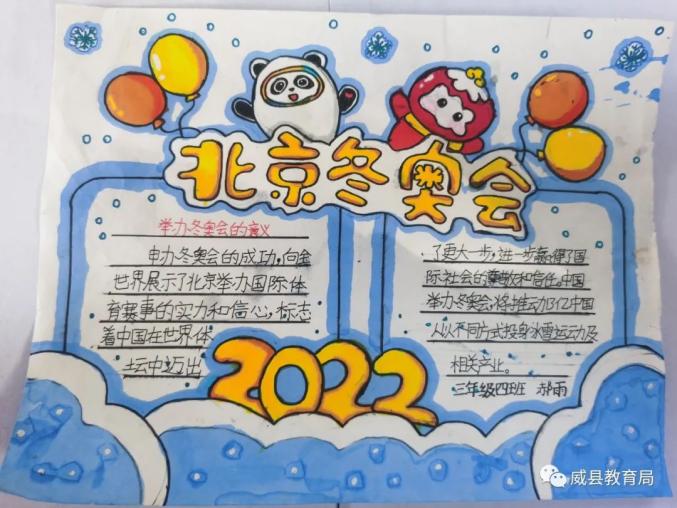 北京冬奥会
举办冬奥会的意义
申办冬奥会的成功,向全
世界展示了北京举办国际体
育赛事的实力和信心,标志
着中国在世界体
坛中迈出
了更大一步,进一步赢得了国
际社会的尊敬和信任。中国
举办冬奥会,将推动13亿中国
人以不同方式投身冰雪运动及
相关产业。
三年级四班 郝雨
2022
威县教育局